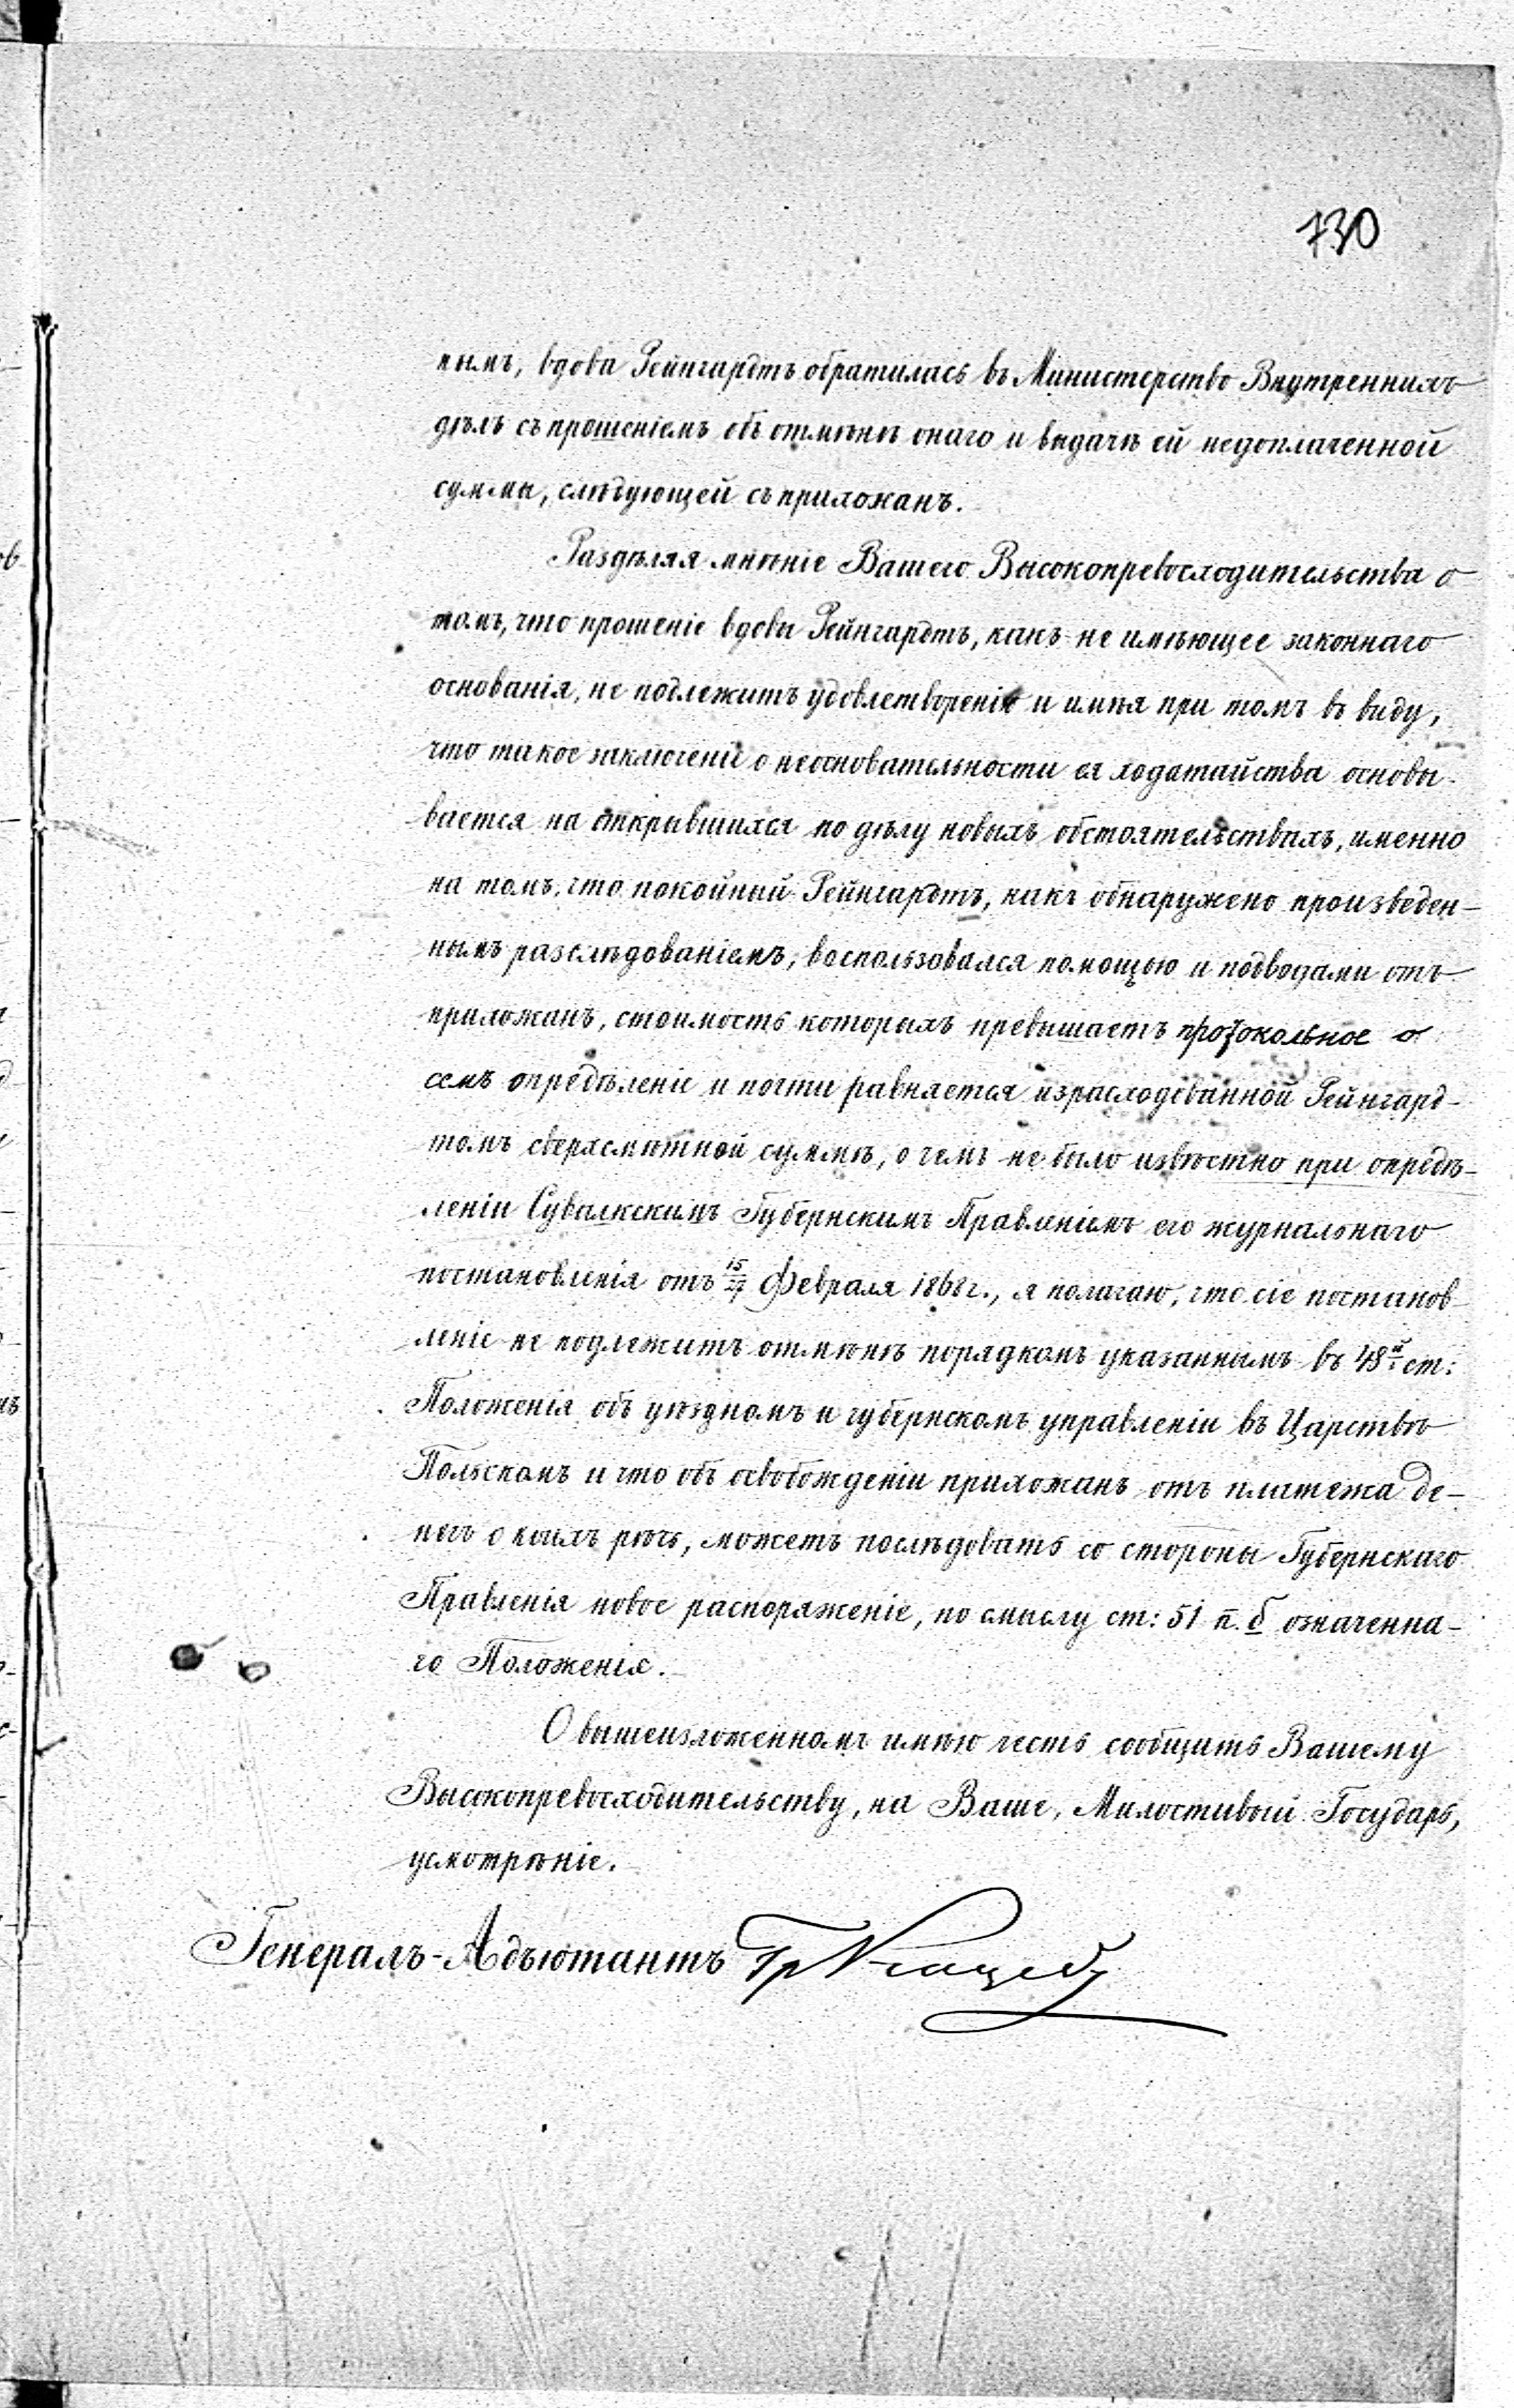 730
нымъ, вдова Рейнгардтъ обратилась въ Министерство Внутреннихъ
дѣлъ съ прошеніемъ объ отмѣнѣ онаго и выдачѣ ей недоплаченной
суммы, слѣдующей съ прихожанъ.
Раздѣляя мнѣніе Вашего Высокопревосходительства о
томъ, что прошеніе вдовы Рейнгардтъ, какъ не имѣющее законнаго
основанія, не подлежитъ удовлетворенію и имѣя при томъ въ виду,
что такое заключеніе о неосновательности ея ходатайства основы-
вается на открывшихся по дѣлу новыхъ обстоятельствахъ, именно
на томъ, что покойный Рейнгардтъ, какъ обнаружено произведен-
нымъ разслѣдованіемъ, воспользовался помощью и подводами отъ
прихожанъ, стоимость которыхъ превышаетъ протокольное о
семъ опредѣленіе и почти равняется израсходованной Рейнгард-
томъ сверхсмѣтной суммѣ, о чемъ не было извѣстно при опредѣ-
леніи Сувалкскимъ Губернскимъ Правленіемъ его журнальнаго
постановленія отъ 15/27 Февраля 1868 г., я полагаю, что сіе постанов-
леніе не подлежитъ отмѣнѣ порядкомъ указаннымъ въ 48й ст:
Положенія объ уѣздномъ и губернскомъ управленіи въ Царствѣ
Польскомъ и что объ освобожденіи прихожанъ отъ платежа де-
негъ о коихъ рѣчь, можетъ послѣдовать со стороны Губернскаго
Правленія новое распоряженіе, по смыслу ст: 51 п. б означенна-
го Положенія.
О вышеизложенномъ имѣю честь сообщить Вашему
Высокопревосходительству, на Ваше, Милостивый Государь,
усмотрѣніе.
Генералъ-Адъютантъ Гр